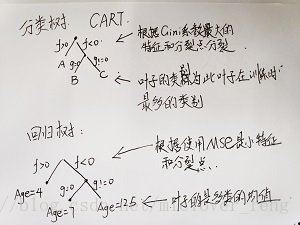 分类树: CART.
f>0 f<0
根据Gini系数最大的
特征和分裂点分裂
A g>0 g!=0
B C
叶子的类别为此叶子在训练时
最多的类别
回归树:
f>0 f<0
根据使用MSE最小特征
和分裂点.
Age=4 g=0 g!=0
Age=7 Age=12.5
叶子的是多类的均值